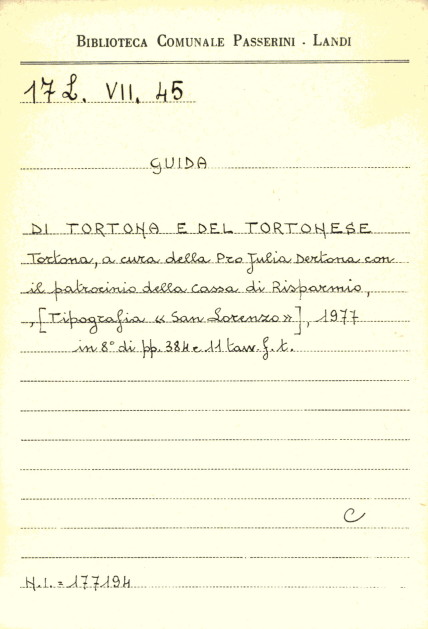 BIBLIOTECA COMUNALE PASSERINI - LANDI
17 L. VII. 45
GUIDA
DI TORTONA E DEL TORTONESE
Tortona, a cura della Pro Julia Dertona con
il patrocinio della Cassa di Risparmio,
, [Tipografia « San Lorenzo »], 1977
in 8° di pp. 384 e 11 tavv. f. t.
C
N. I. = 177194